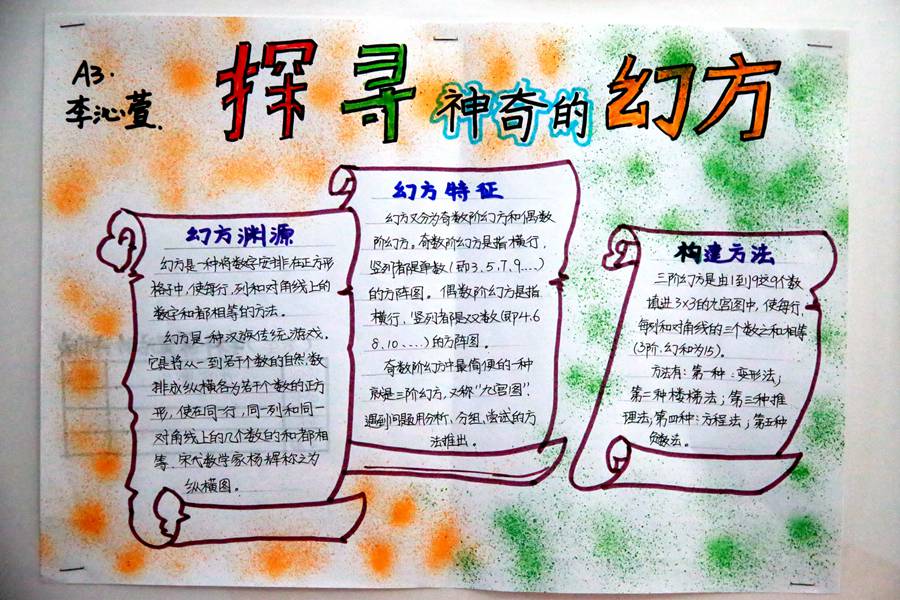 A3.
李沁萱.
探寻神奇的幻方
幻方渊源
幻方是一种将数字安排在正方形
格子中,使每行、列和对角线上的
数字和都相等的方法。
幻方是一种汉族传统游戏。
它是将从一到若干个数的自然数
排成纵横各为若干个数的正方
形,使在同一行,同一列和同一
对角线上的几个数的和都相
等。宋代数学家杨辉称之为
纵横图。
幻方特征
幻方又分为奇数阶幻方和偶数
阶幻方。奇数阶幻方是指横行、
竖列都是单数(即3、5、7、9...)
的方阵图。偶数阶幻方是指
横行,竖列都是双数(即4、6
8、10......)的方阵图。
奇数阶幻方中最简便的一种
就是三阶幻方,又称“九宫图”.
遇到问题用分析、分组、尝试的方
法推出。
构建方法
三阶幻方是由1到9这9个数
填进3×3的九宫图中,使每行
每列和对角线的三个数之和相等
(3阶,幻和为15)。
方法有:第一种:变形法;
第二种楼梯法;第三种推
理法;第四种:方程法;第五种
负数法。